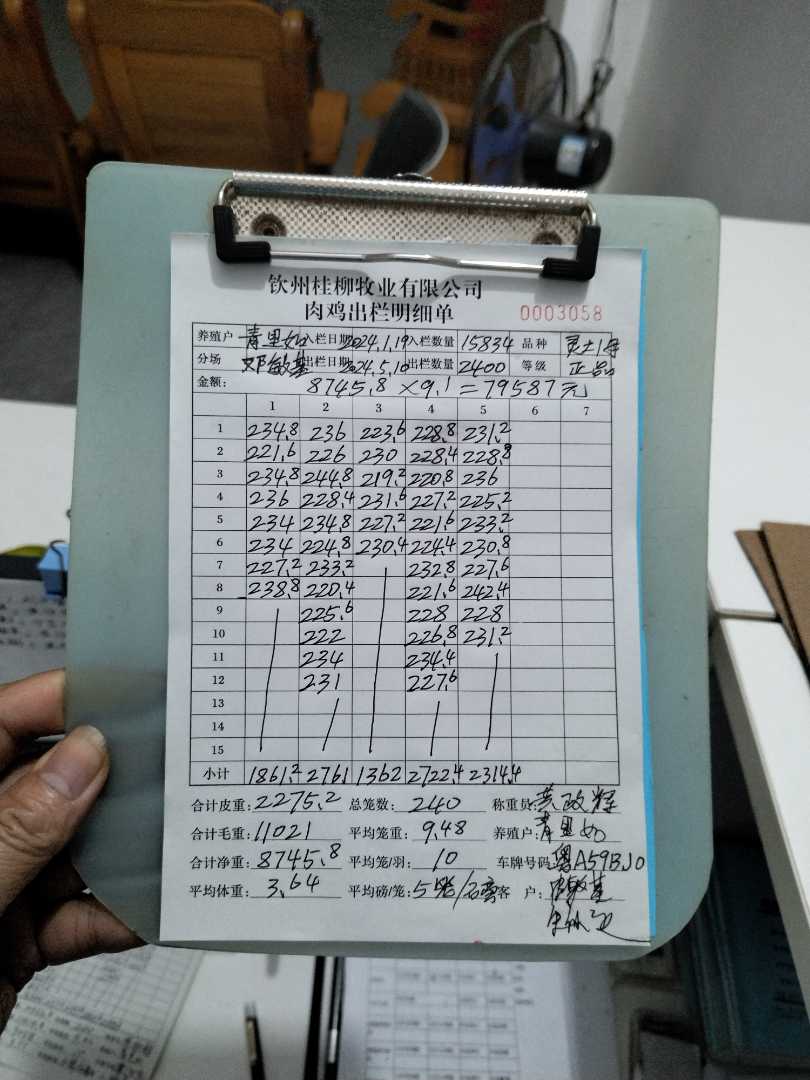 钦州桂柳牧业有限公司
肉鸡出栏明细单 0003058
养殖户 青里如 入栏日期 2024.1.19 入栏数量 15834 品种
分场 邓敏基 出栏日期 2024.5.10 出栏数量 2400 等级 正品
金额: 8745.8 ×9.1 = 79587元
1 2 3 4 5 6 7
1 234.8 236 223.6 228.8 231.2
2 221.6 226 230 228.4 228.8
3 234.8 244.8 219.2 220.8 236
4 236 228.4 231.6 227.2 225.2
5 234 234.8 227.2 221.6 233.2
6 234 224.8 230.4 224.4 230.8
7 227.2 233.2 232.8 227.6
8 238.8 220.4 221.6 242.4
9 225.6 228 228
10 222 226.8 231.2
11 234 234.4
12 231 227.6
13
14
15
小计 1861.2 2761 1362 2722.4 2314.4
合计皮重: 2275.2 总笼数: 240 称重员: 黄政辉
合计毛重: 11021 平均笼重: 9.48 养殖户: 青里如
合计净重: 8745.8 平均笼/羽: 10 车牌号码: 粤A59BJ0
平均体重: 3.64 平均磅/笼: 5 客 户: